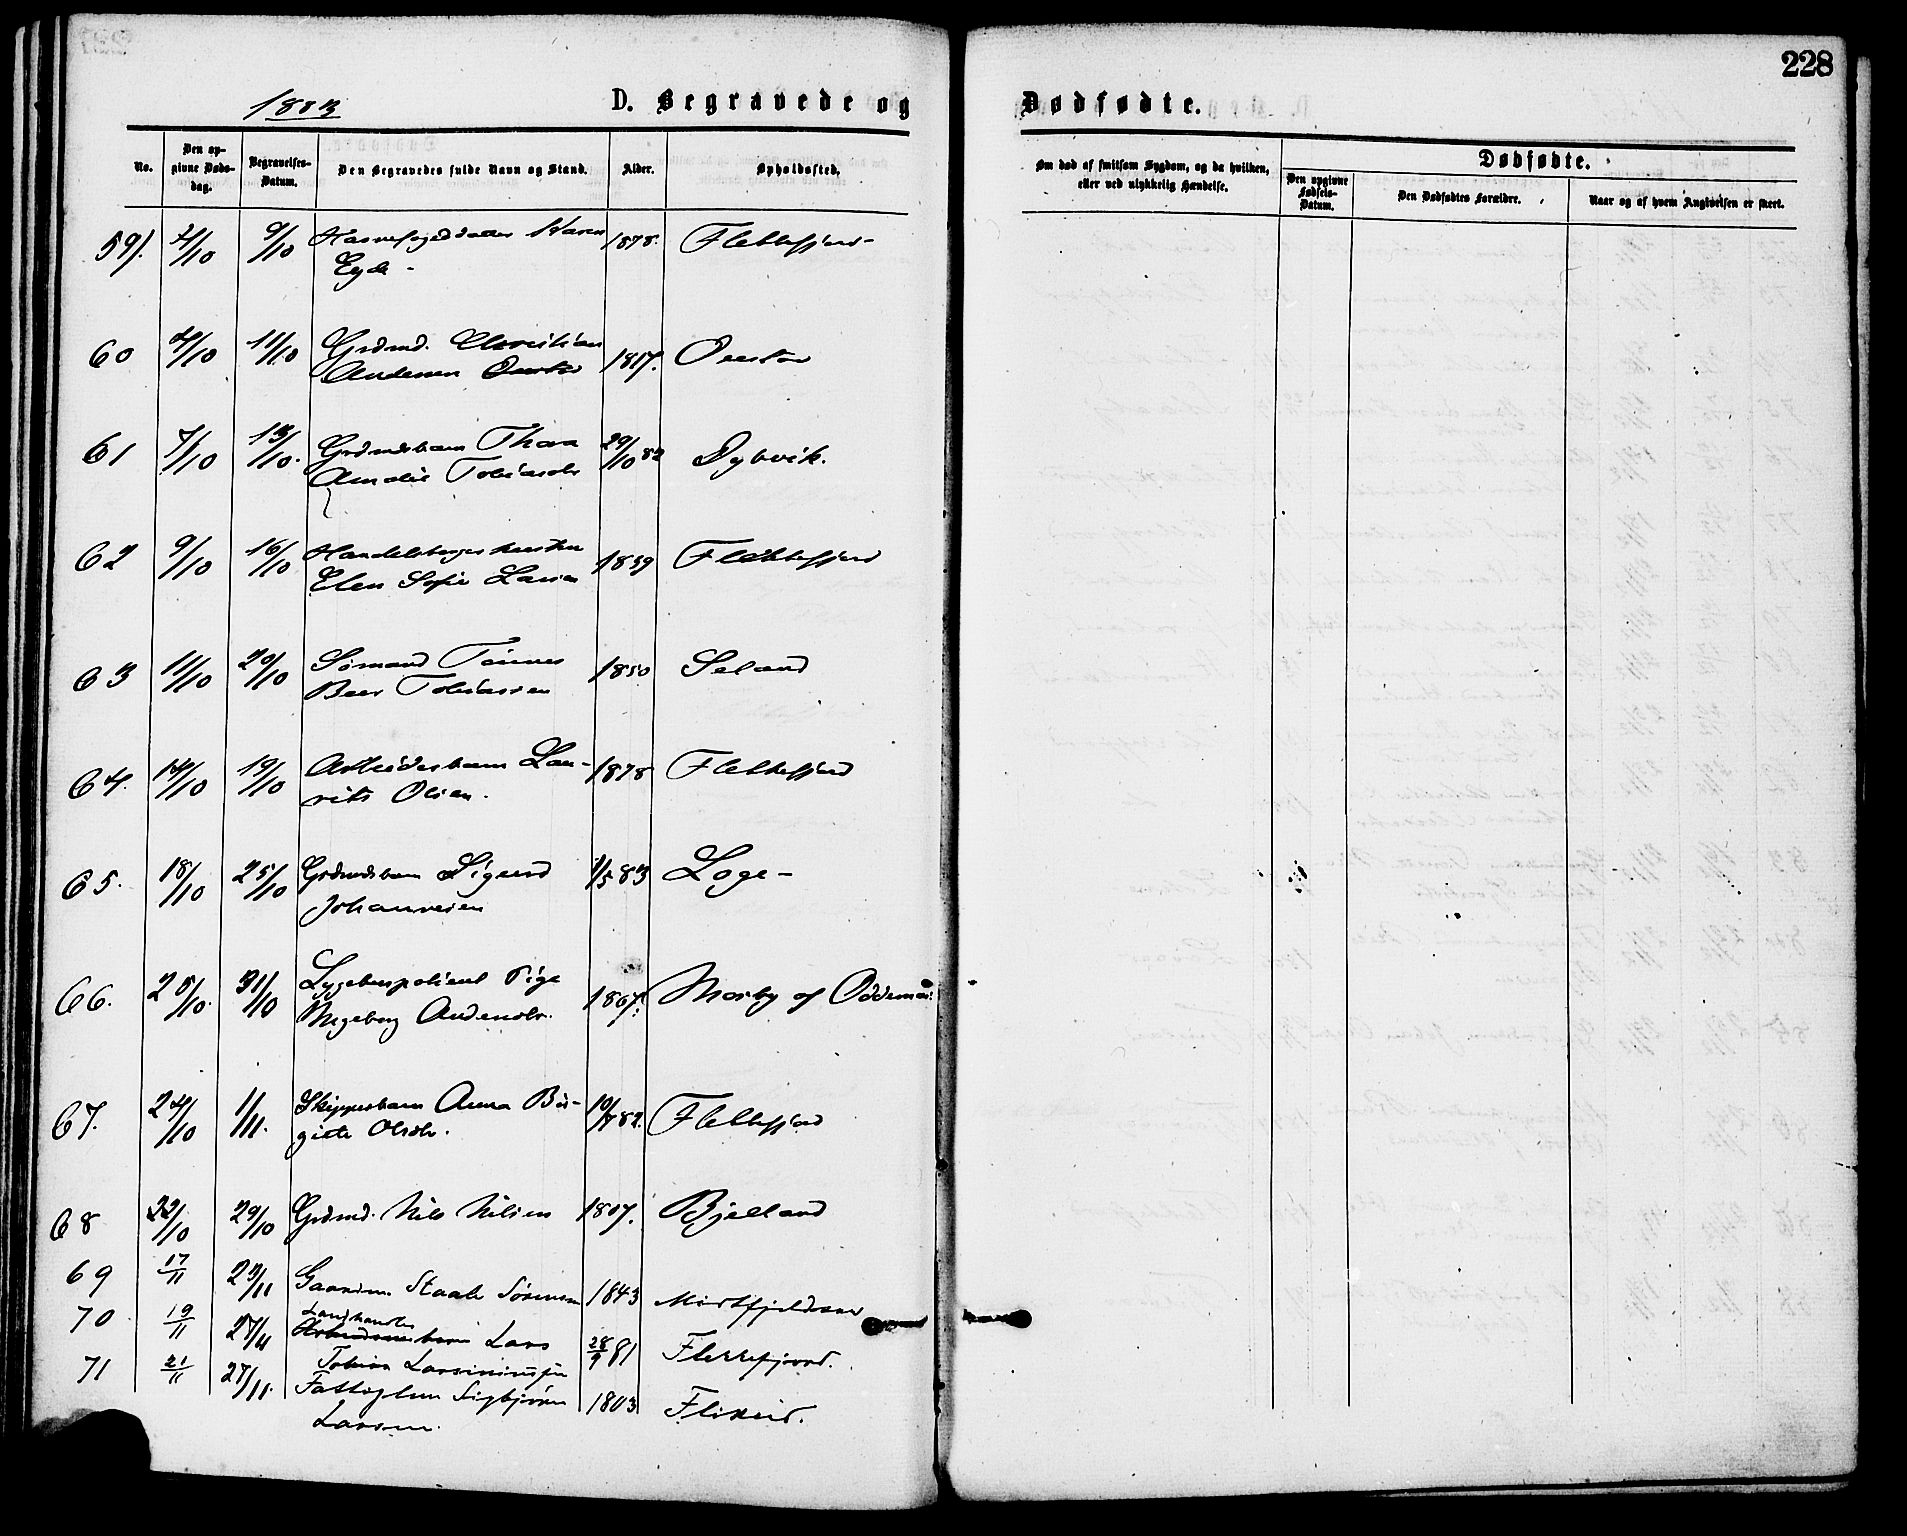 228
1883
D. Begravede og
Dødfødte.
No.
Den op-
givne Døds-
dag.
Begravelses-
Datum.
Den Begravedes fulde Navn og Stand.
Alder.
Opholdssted.
Om død af smitsom Sygdom, og da hvilken,
eller ved ulykkelig Hændelse.
Dødfødte.
Den opgivne
Fødsels-
Datum.
Den Dødfødtes Forældre.
Naar og af hvem Angivelsen er skeet.
59. 2/10 9/10 Havnefogeddatter Karen 1878. Flekkefjord-
Eyde -
60 4/10 11/10 Grdmd. Christian
Andersen 1817.
61 7/10 13/10. Grdmdsbarn Thea 29/10 82 Dybvik.
Amalie Tobiasdtr
62 9/10 16/10 1859 Flekkefjord
Elen Sofie Larsen
63 11/10 20/10 Sømand Tønnes 1850 Seland
Beer Tobiassen
64. 14/10 19/10 Arbeidsbarn Lau- 1878 Flekkefjord
rits Olsen.
65. 18/10 25/10 Grdmdsbarn Sigurd 1/5 83 Loge-
Johannesen
66. 25/10. 31/10 Pige 1867. Mosby af Oddernes.
Ingeborg Andersdtr.
67. 24/10 1/11. Skippersbarn Anna Bir- 10/7 82. Flekkefjord
gitte Olsdtr.
68 22/10 29/10 Grdmd. Nils Nilsen 1807. Bjelland
69 17/11 23/11 Gaardm. Staale Sörensen 1843
70 19/11 27/11 Landhandler
Lars 28/9 81 Flekkefjord.
71 21/11 27/11. Tobias
Fattiglem Sigbjörn 1803 Flikeid.
Larsen.